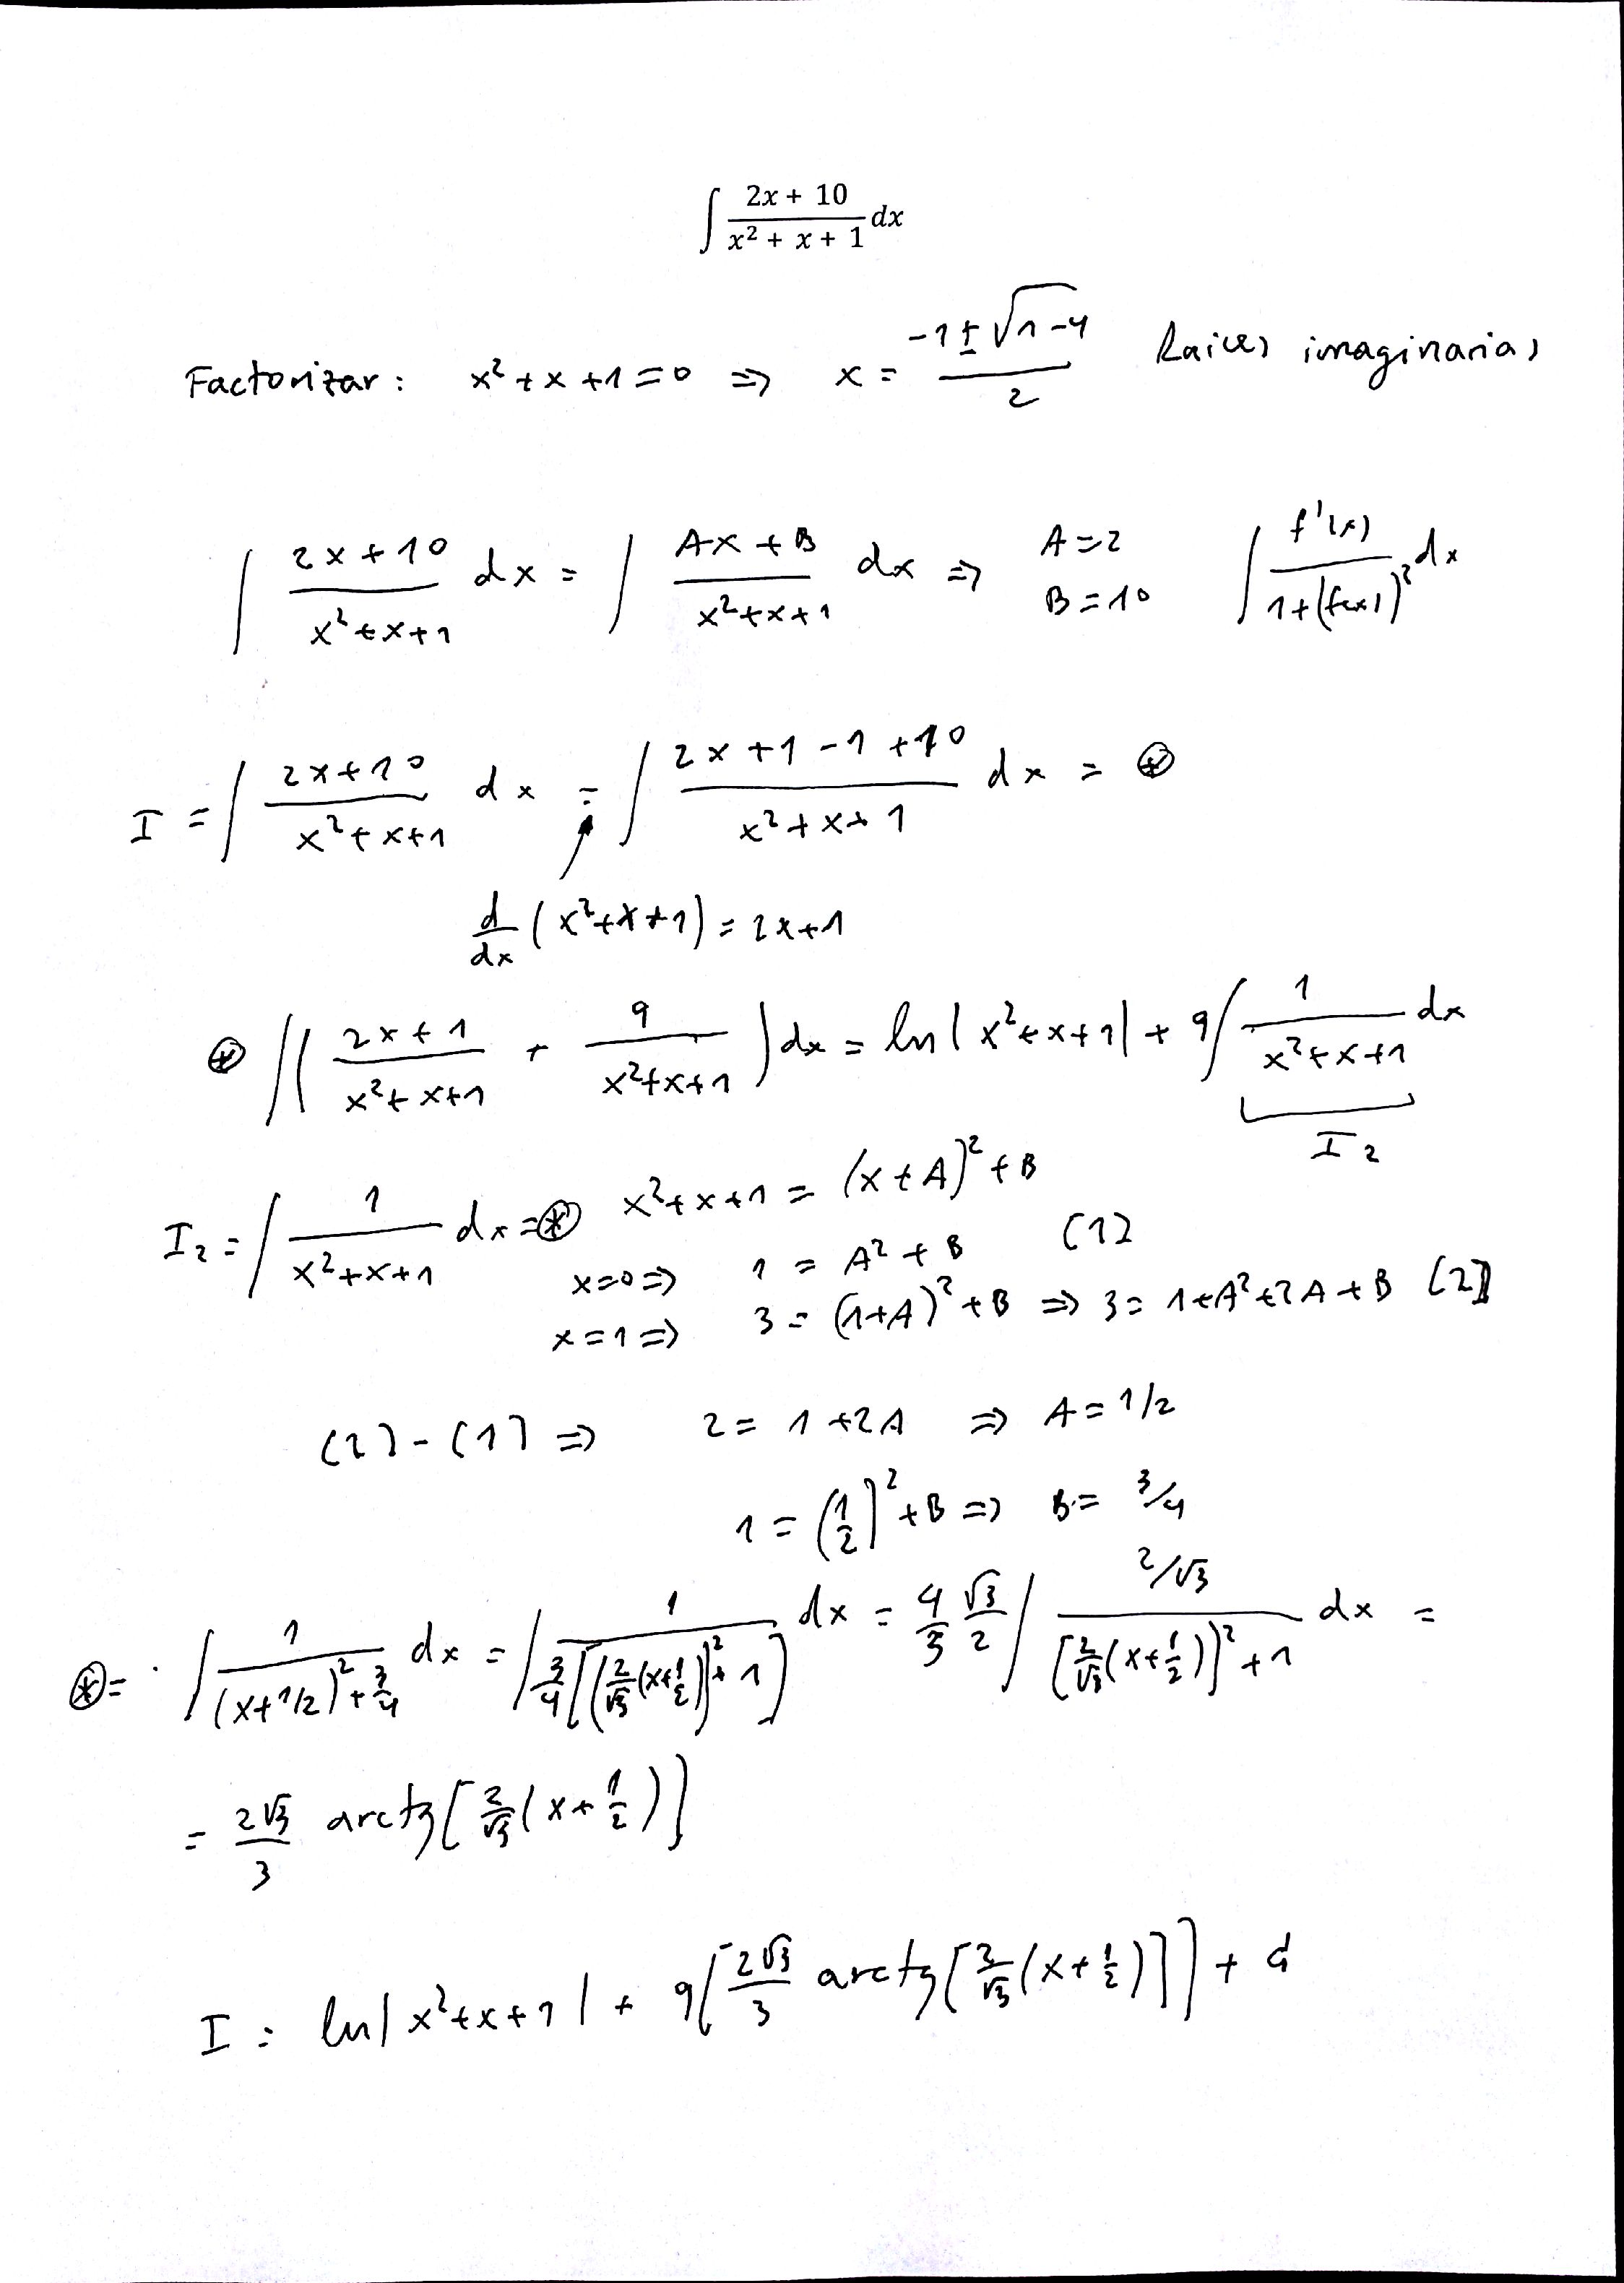 ∫ (2x + 10)/(x² + x + 1) dx
Factorizar: x² + x + 1 = 0 ⇒ x = (-1 ± √(1-4))/2 Raices imaginarias
∫ (2x + 10)/(x² + x + 1) dx = ∫ (Ax + B)/(x² + x + 1) dx ⇒ A = 2 B = 10 ∫ f'(x)/(1 + (f(x))²) dx
I = ∫ (2x + 10)/(x² + x + 1) dx = ∫ (2x + 1 - 1 + 10)/(x² + x + 1) dx = ⊛
d/dx (x² + x + 1) = 2x + 1
⊛ ∫ ( (2x + 1)/(x² + x + 1) + 9/(x² + x + 1) ) dx = ln |x² + x + 1| + 9 ∫ 1/(x² + x + 1) dx
I₂
I₂ = ∫ 1/(x² + x + 1) dx = ⊛ x² + x + 1 = (x + A)² + B
x = 0 ⇒ 1 = A² + B [1]
x = 1 ⇒ 3 = (1 + A)² + B ⇒ 3 = 1 + A² + 2A + B [2]
[2] - [1] ⇒ 2 = 1 + 2A ⇒ A = 1/2
1 = (1/2)² + B ⇒ B = 3/4
⊛ = ∫ 1/((x + 1/2)² + 3/4) dx = ∫ 1/(3/4 [(2/√3 (x + 1/2))² + 1]) dx = 4/3 √3/2 ∫ (2/√3)/([2/√3 (x + 1/2)]² + 1) dx =
= 2√3/3 arctg [2/√3 (x + 1/2)]
I = ln |x² + x + 1| + 9 [2√3/3 arctg [2/√3 (x + 1/2)]] + C